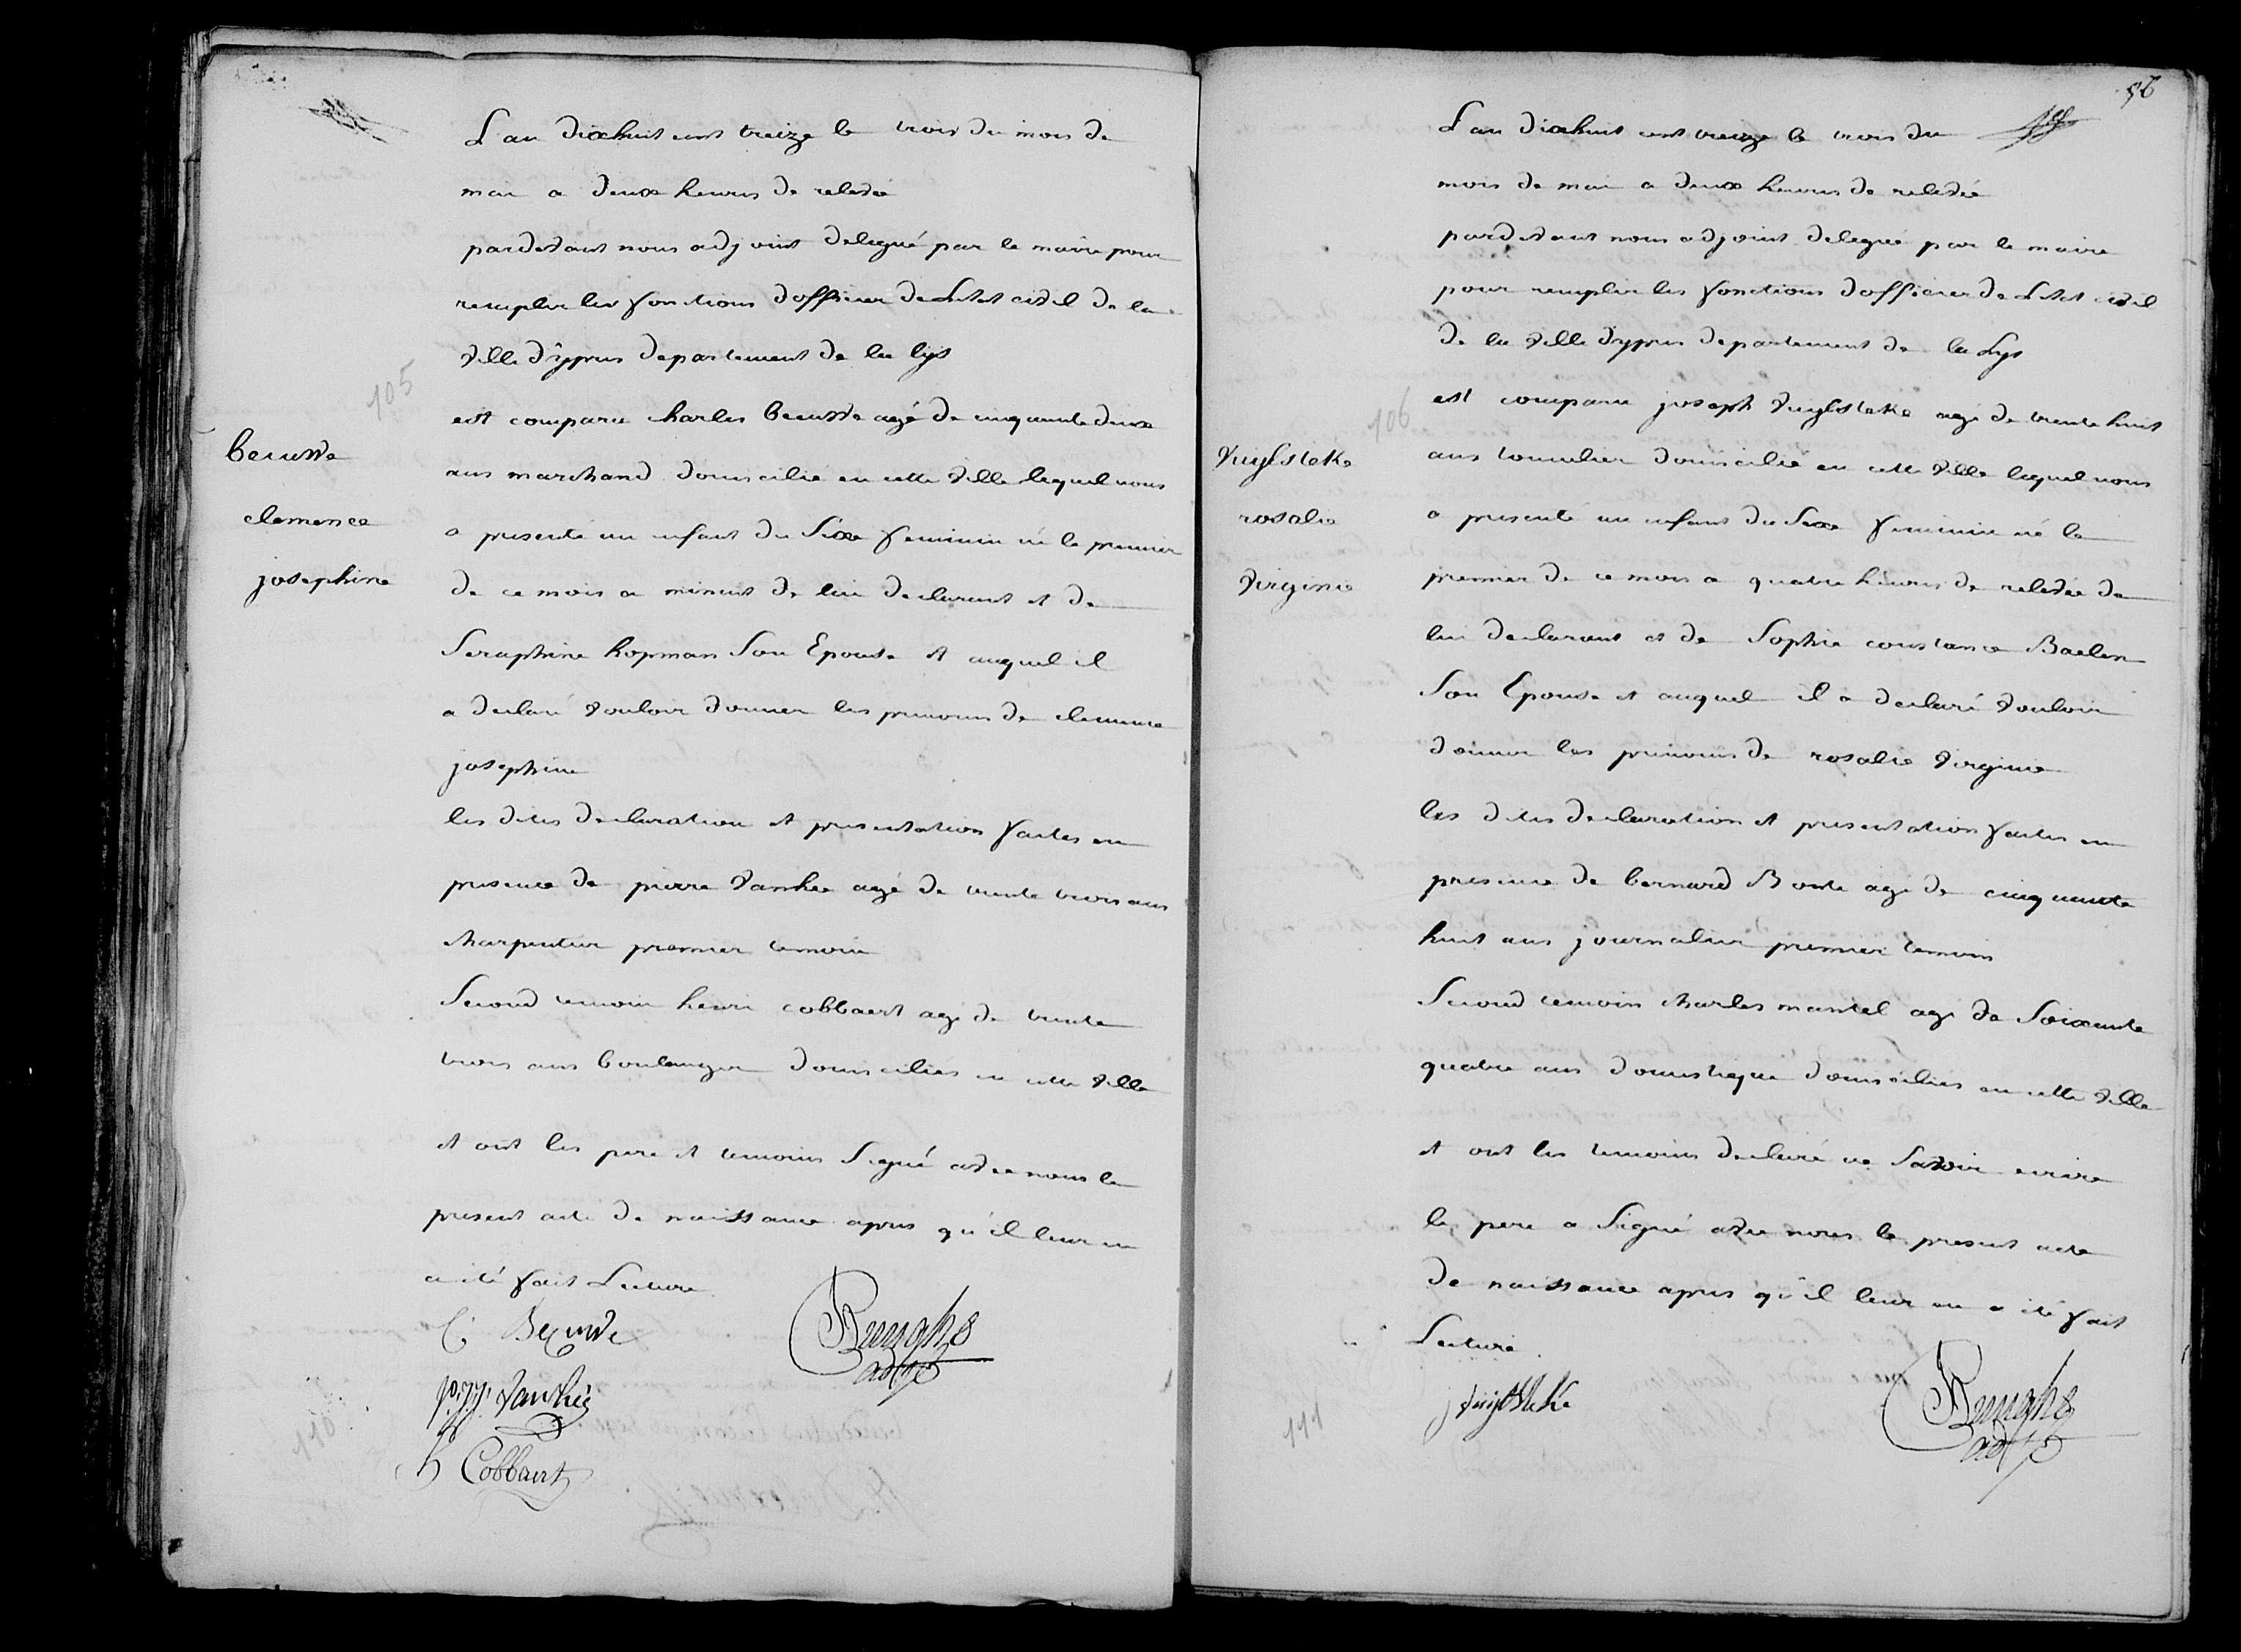 L'an dixhuit cent treize le trois du mois de
mai a deux heures de relevée
pardevant nous adjoint delegué par le maire pour
remplir les fonctions d'officier de L'etat civil de la
ville d'ypres departement de la lys
105
est comparu charles becuwe agé de cinquante deux
ans marchand domicilié en cette ville lequel nous
a presenté un enfant du Sexe feminin né le premier
de ce mois a minuit de lui declarant et de
Seraphine hopman Son Epouse et auquel il
a declaré vouloir donner les prenoms de clemence
josephine
becuwe
clemence
josephine
les dites declaration et presentation faites en
presence de pierre vanhee agé de trente trois ans
charpentier premier temoin
Second temoin henri cobbaert agé de trente
trois ans boulanger domiciliés en cette ville
et ont les pere et temoins Signé avec nous le
present acte de naissance apres qu'il leur en
a été fait Lecture
C: Becuwe
p:jj: vanheé
h Cobbaert
adj
110
96
L'an dixhuit cent treize le trois du
mois de mai a deux heures de relevée
pardevant nous adjoint delegué par le maire
pour remplir les fonctions d'officier de L'etat civil
de la ville d'ypres departement de la Lys
106
est comparu joseph vuylsteke agé de trente huit
ans domicilié en cette ville lequel nous
a presenté un enfant du Sexe feminin né le
premier de ce mois a quatre heures de relevée de
lui declarant et de Sophie constance Baelen
Son Epouse et auquel il a declaré vouloir
donner les prenoms de rosalie virginie
vuylsteke
rosalie
virginie
les dites declaration et presentation faites en
presence de bernard Bonte agé de cinquante
huit ans journalier premier temoin
Second temoin charles mantel agé de Soixante
quatre ans domestique domiciliés en cette ville
et ont les temoins declaré ne Savoir ecrire
le pere a Signé avec nous le present acte
de naissance apres qu'il leur en a été fait
Lecture.
j vuylsteke
adj
111